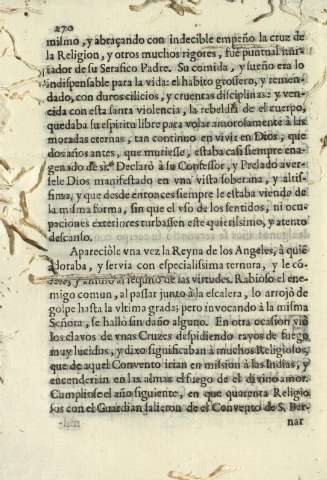 270
mismo, y abraçando con indecible empeño la cruz de
la Religion, y otros muchos rigores, fue puntual imi-
tador de su Serafico Padre. Su comida, y sueño era lo
indispensable para la vida: el habito grossero, y remen-
dado, con duros cilicios, y cruentas disciplinas: y ven-
cida con esta santa violencia, la rebeldia de el cuerpo,
quedaba su espiritu libre para volar amorosamente à las
moradas eternas, tan continuo en vivir en Dios, que
dos años antes, que muriesse, estaba casi siempre ena-
genado de si. Declarò à su Confessor, y Prelado aver-
sele Dios manifestado en vna vista soberana, y altis-
sima, y que desde entonces siempre le estaba viendo de
la misma forma, sin que el vso de los sentidos, ni ocu-
paciones exteriores turbassen este quietissimo, y atento
descanso.
Apareciòle vna vez la Reyna de los Angeles, à quiē
adoraba, y servia con especialissima ternura, y le
de las virtudes. Rabioso el ene-
migo comun, al passar junto à la escalera, lo arrojò de
golpe hasta la vltima grada; pero invocando à la misma
Señora, se hallò sin daño alguno. En otra ocasion viò
los clavos de vnas Cruzes despidiendo rayos de fuego
muy lucidos, y dixo significaban à muchos Religiosos,
que de aquel Convento irian en mission à las Indias, y
encenderian en las almas el fuego de el divino amor.
Cumpliose el año siguiente, en que quarenta Religio
sos con el Guardian salieron de el Convento de S. Ber-
nar